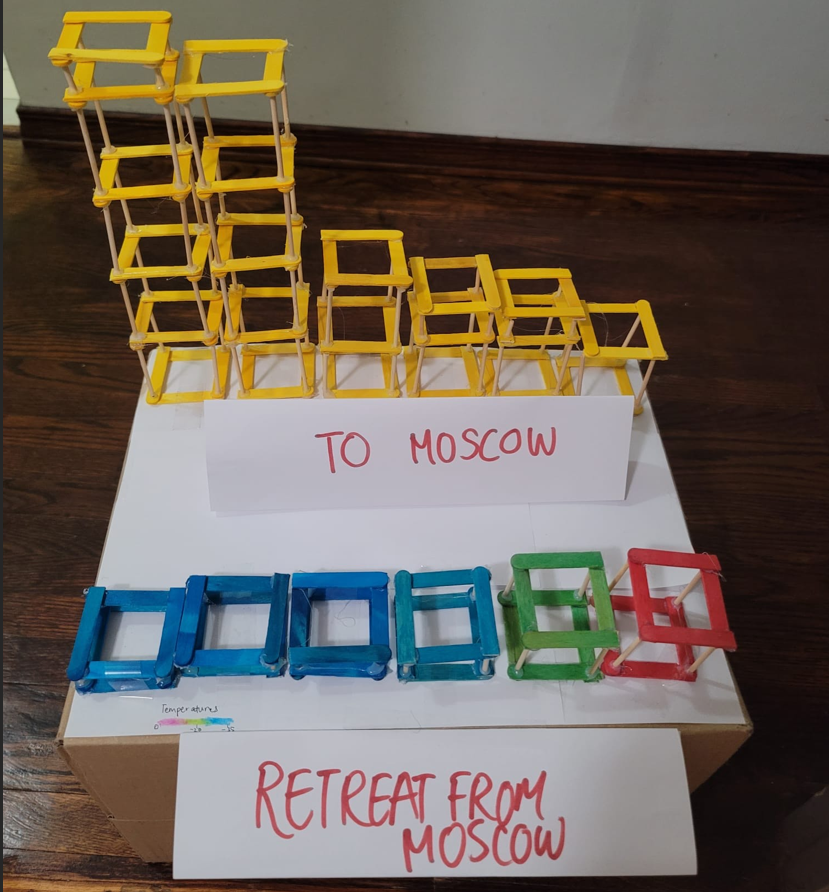 TO MOSCOW
Temperatures
0 -10
RETREAT FROM
MOSCOW